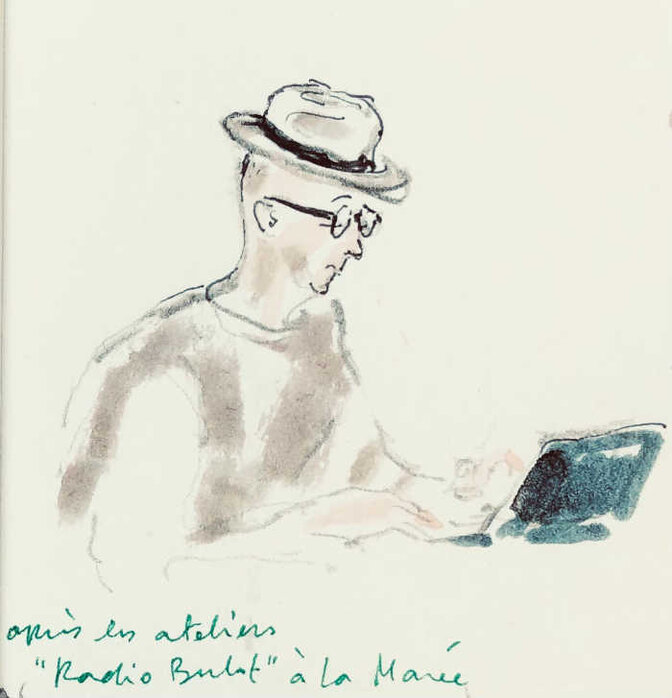 après les ateliers
"Radio Bulot" à la Marée